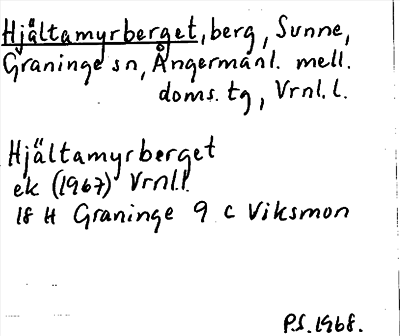 Hjältamyrberget, berg, Sunne,
Graninge sn, Ångermanl. mell.
doms. tg, Vrnl. l.
Hjältamyrberget
ek (1967) Vrnl.l.
18 H Graninge 9 c Viksmon
P.S. 1968.